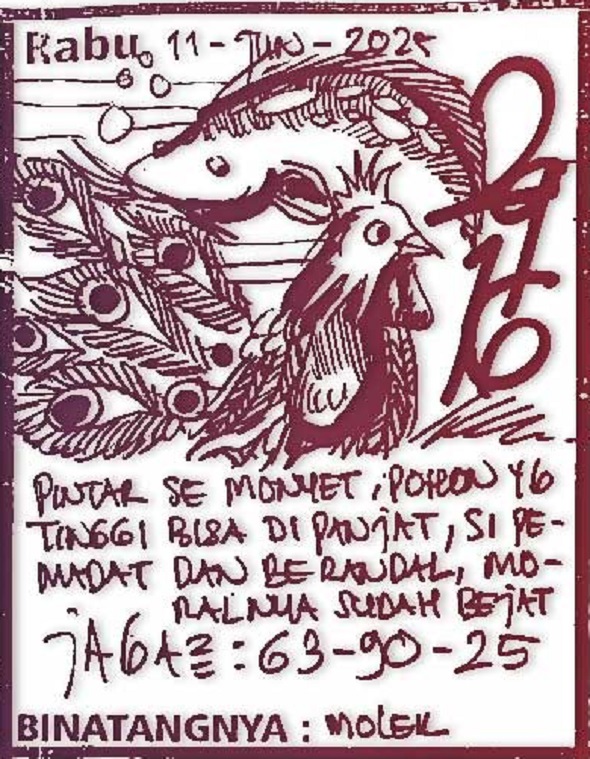 Rabu, 11-JUN-2025
PINTAR SE MONYET, POHON YG
TINGGI BISA DI PANJAT, SI PE-
MADAT DAN BERANDAL, MO-
RALNYA SUDAH BEJAT
JAGA2 : 63-90-25
BINATANGNYA : MOLEK